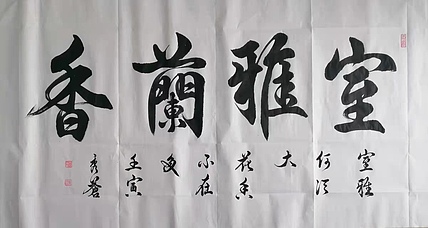 室雅蘭香
室雅
何須
大
花香
不在
多
壬寅